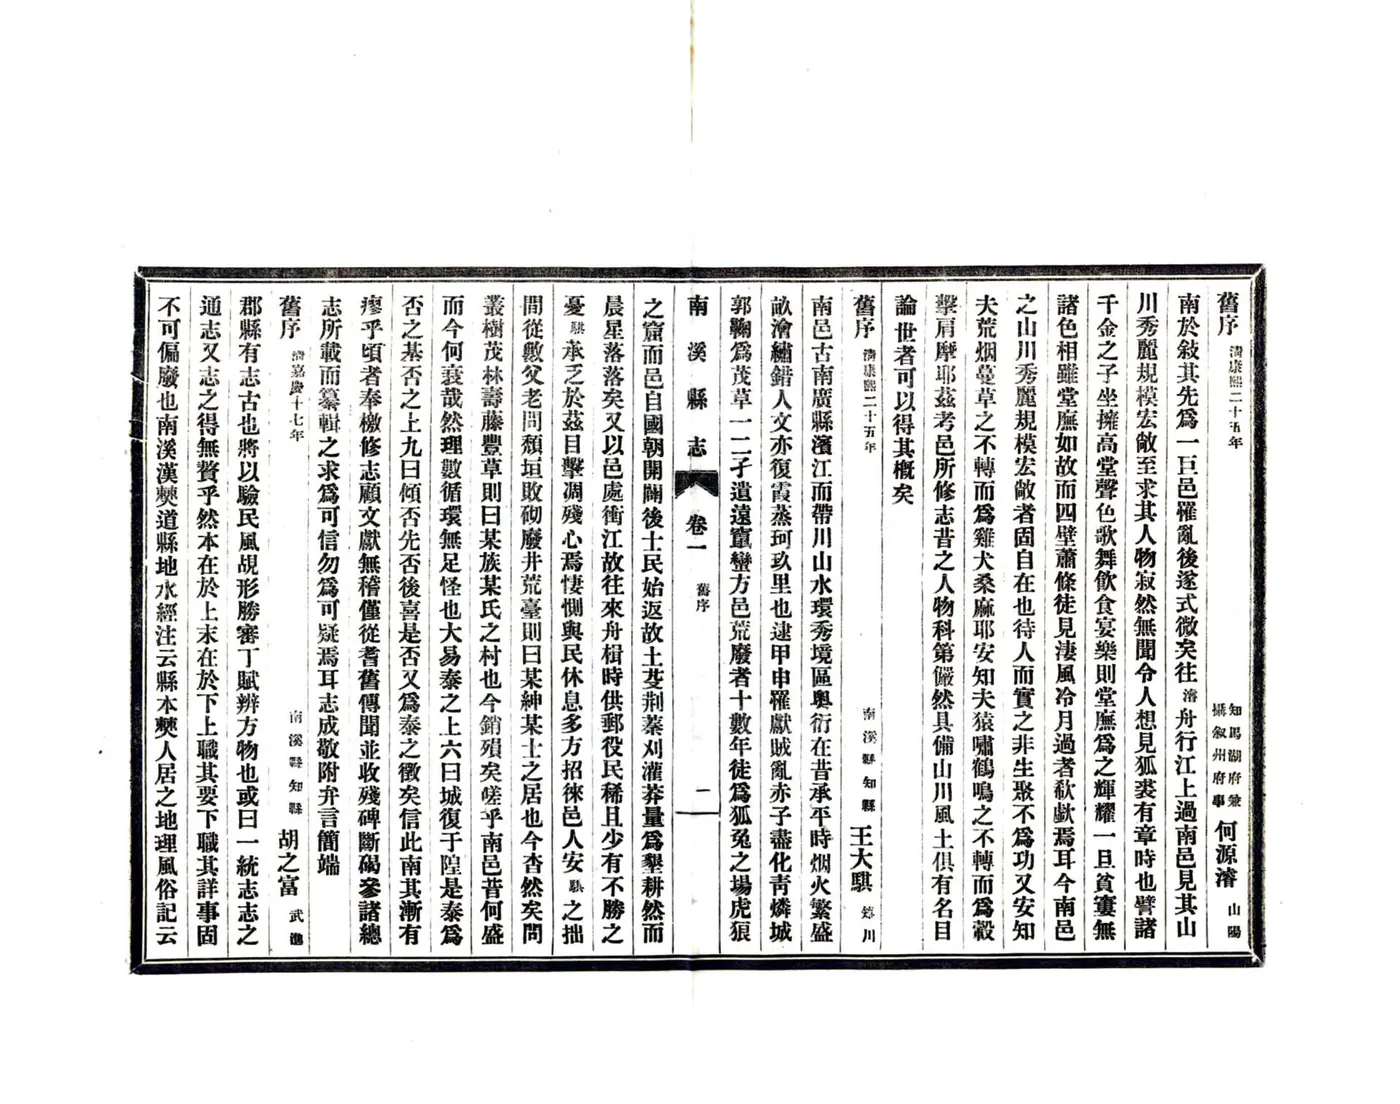 舊序 清康熙二十五年 知馬湖府兼攝叙州府事 何源濬 山陽
南於敍其先爲一巨邑罹亂後遂式微矣往濬舟行江上過南邑見其山
川秀麗規模宏敞至求其人物寂然無聞令人想見狐裘有章時也譬諸
千金之子坐擁高堂聲色歌舞飮食宴樂則堂廡爲之輝耀一旦貧窶無
諸色相雖堂廡如故而四壁蕭條徒見凄風冷月過者欷歔焉耳今南邑
之山川秀麗規模宏敞者固自在也待人而實之非生聚不爲功又安知
夫荒烟蔓草之不轉而爲雞犬桑麻耶安知夫猿嘯鶴鳴之不轉而爲轂
擊肩摩耶茲考邑所修志昔之人物科第儼然具備山川風土俱有名目
論世者可以得其槪矣
舊序 清康熙二十五年 南溪縣知縣 王大騏 川
南邑古南廣縣濱江而帶川山水環秀境區奧衍在昔承平時烟火繁盛
畝澮繡錯人文亦復霞蒸珂玖里也逮甲申罹獻賊亂赤子盡化靑燐城
郭鞠爲茂草一二孑遺遠竄蠻方邑荒廢者十數年徒爲狐兔之場虎狼
南溪縣志 卷一 舊序 二
之窟而邑自國朝開闢後士民始返故土芟荆蓁刈灌莽量爲墾耕然而
晨星落落矣又以邑處衝江故往來舟楫時供郵役民稀且少有不勝之
憂騏承乏於茲目擊凋殘心焉悽惻與民休息多方招徠邑人安騏之拙
間從數父老問頹垣敗砌廢井荒臺則曰某紳某士之居也今杳然矣問
叢樹茂林壽藤豐草則曰某族某氏之村也今銷殞矣嗟乎南邑昔何盛
而今何衰哉然理數循環無足怪也大易泰之上六曰城復于隍是泰爲
否之基否之上九曰傾否先否後喜是否又爲泰之徵矣信此南其漸有
瘳乎頃者奉檄修志顧文獻無稽僅從耆舊傳聞並收殘碑斷碣參諸總
志所載而纂輯之求爲可信勿爲可疑焉耳志成敬附弁言簡端
舊序 清嘉慶十七年 南溪縣知縣 胡之富 武進
郡縣有志古也將以驗民風覘形勝審丁賦辨方物也或曰一統志志之
通志又志之得無贅乎然本在於上末在於下上職其要下職其詳事固
不可偏廢也南溪漢僰道縣地水經注云縣本僰人居之地理風俗記云